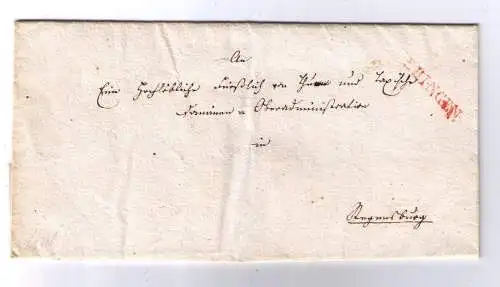 An
Eine Hochlöbliche Fürstlich von Thurn und Taxische
Domainen Oberadministration
in
Regensburg